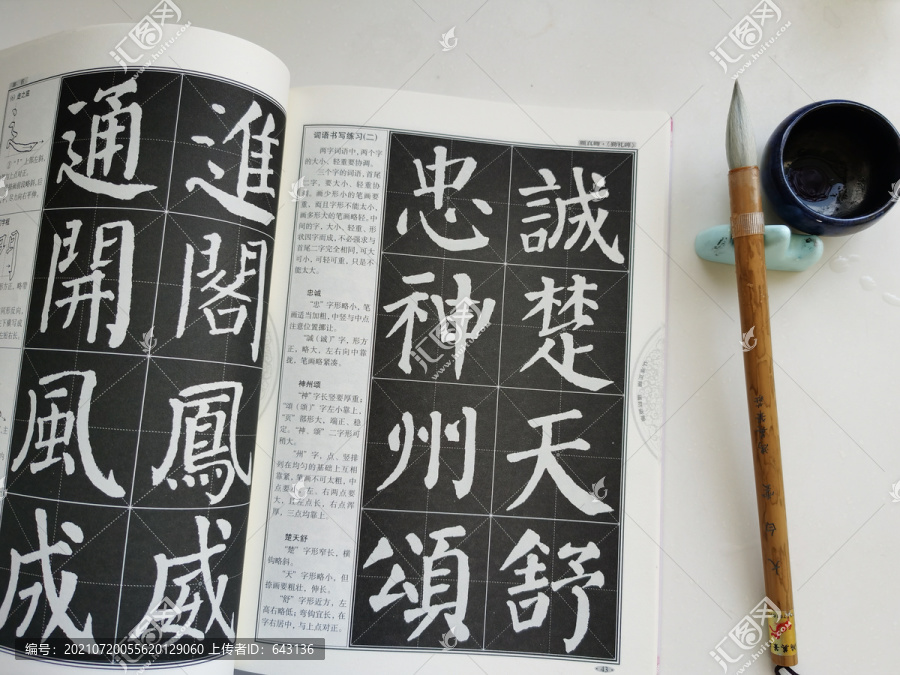 通 進
開 閣
風 鳳
成 威
词语书写练习(二)
两字词语中,两个字
的大小、轻重要协调。
三个字的词语,首尾
二字,要大小、轻重协
调。画少形小的笔画要
重,而且字形不能太小,
画多形大的笔画略轻。中
间的字,大小、轻重、形
状因字而成,不必强求与
首尾二字完全相同,可大
可小,可轻可重,只是不
能太大。
忠诚
“忠”字形略小,笔
画适当加粗,中竖与中点
注意位置挪让。
“誠(诚)”字,形方
正,略大,左右向中靠
拢,笔画略紧凑。
神州颂
“神”字长竖要厚重;
“頌(颂)”字左小靠上,
“頁”部形大,端正、稳
定。“神、頌”二字形可
稍大。
“州”字,点、竖排
列在均匀的基础上互相
靠紧,笔画不可太粗,中
大,
厚,三点均靠上。
楚天舒
“楚”字形窄长,横
钩略斜。
“天”字形略小,但
捺画要粗壮,伸长。
“舒”字形近方,左
高右略低;弯钩宜长,在
字右居中,与上点对正。
忠 誠
神 楚
州 天
頌 舒
汇图网
www.huitu.com
编号ID: 20210720055620129060 上传者ID: 643136